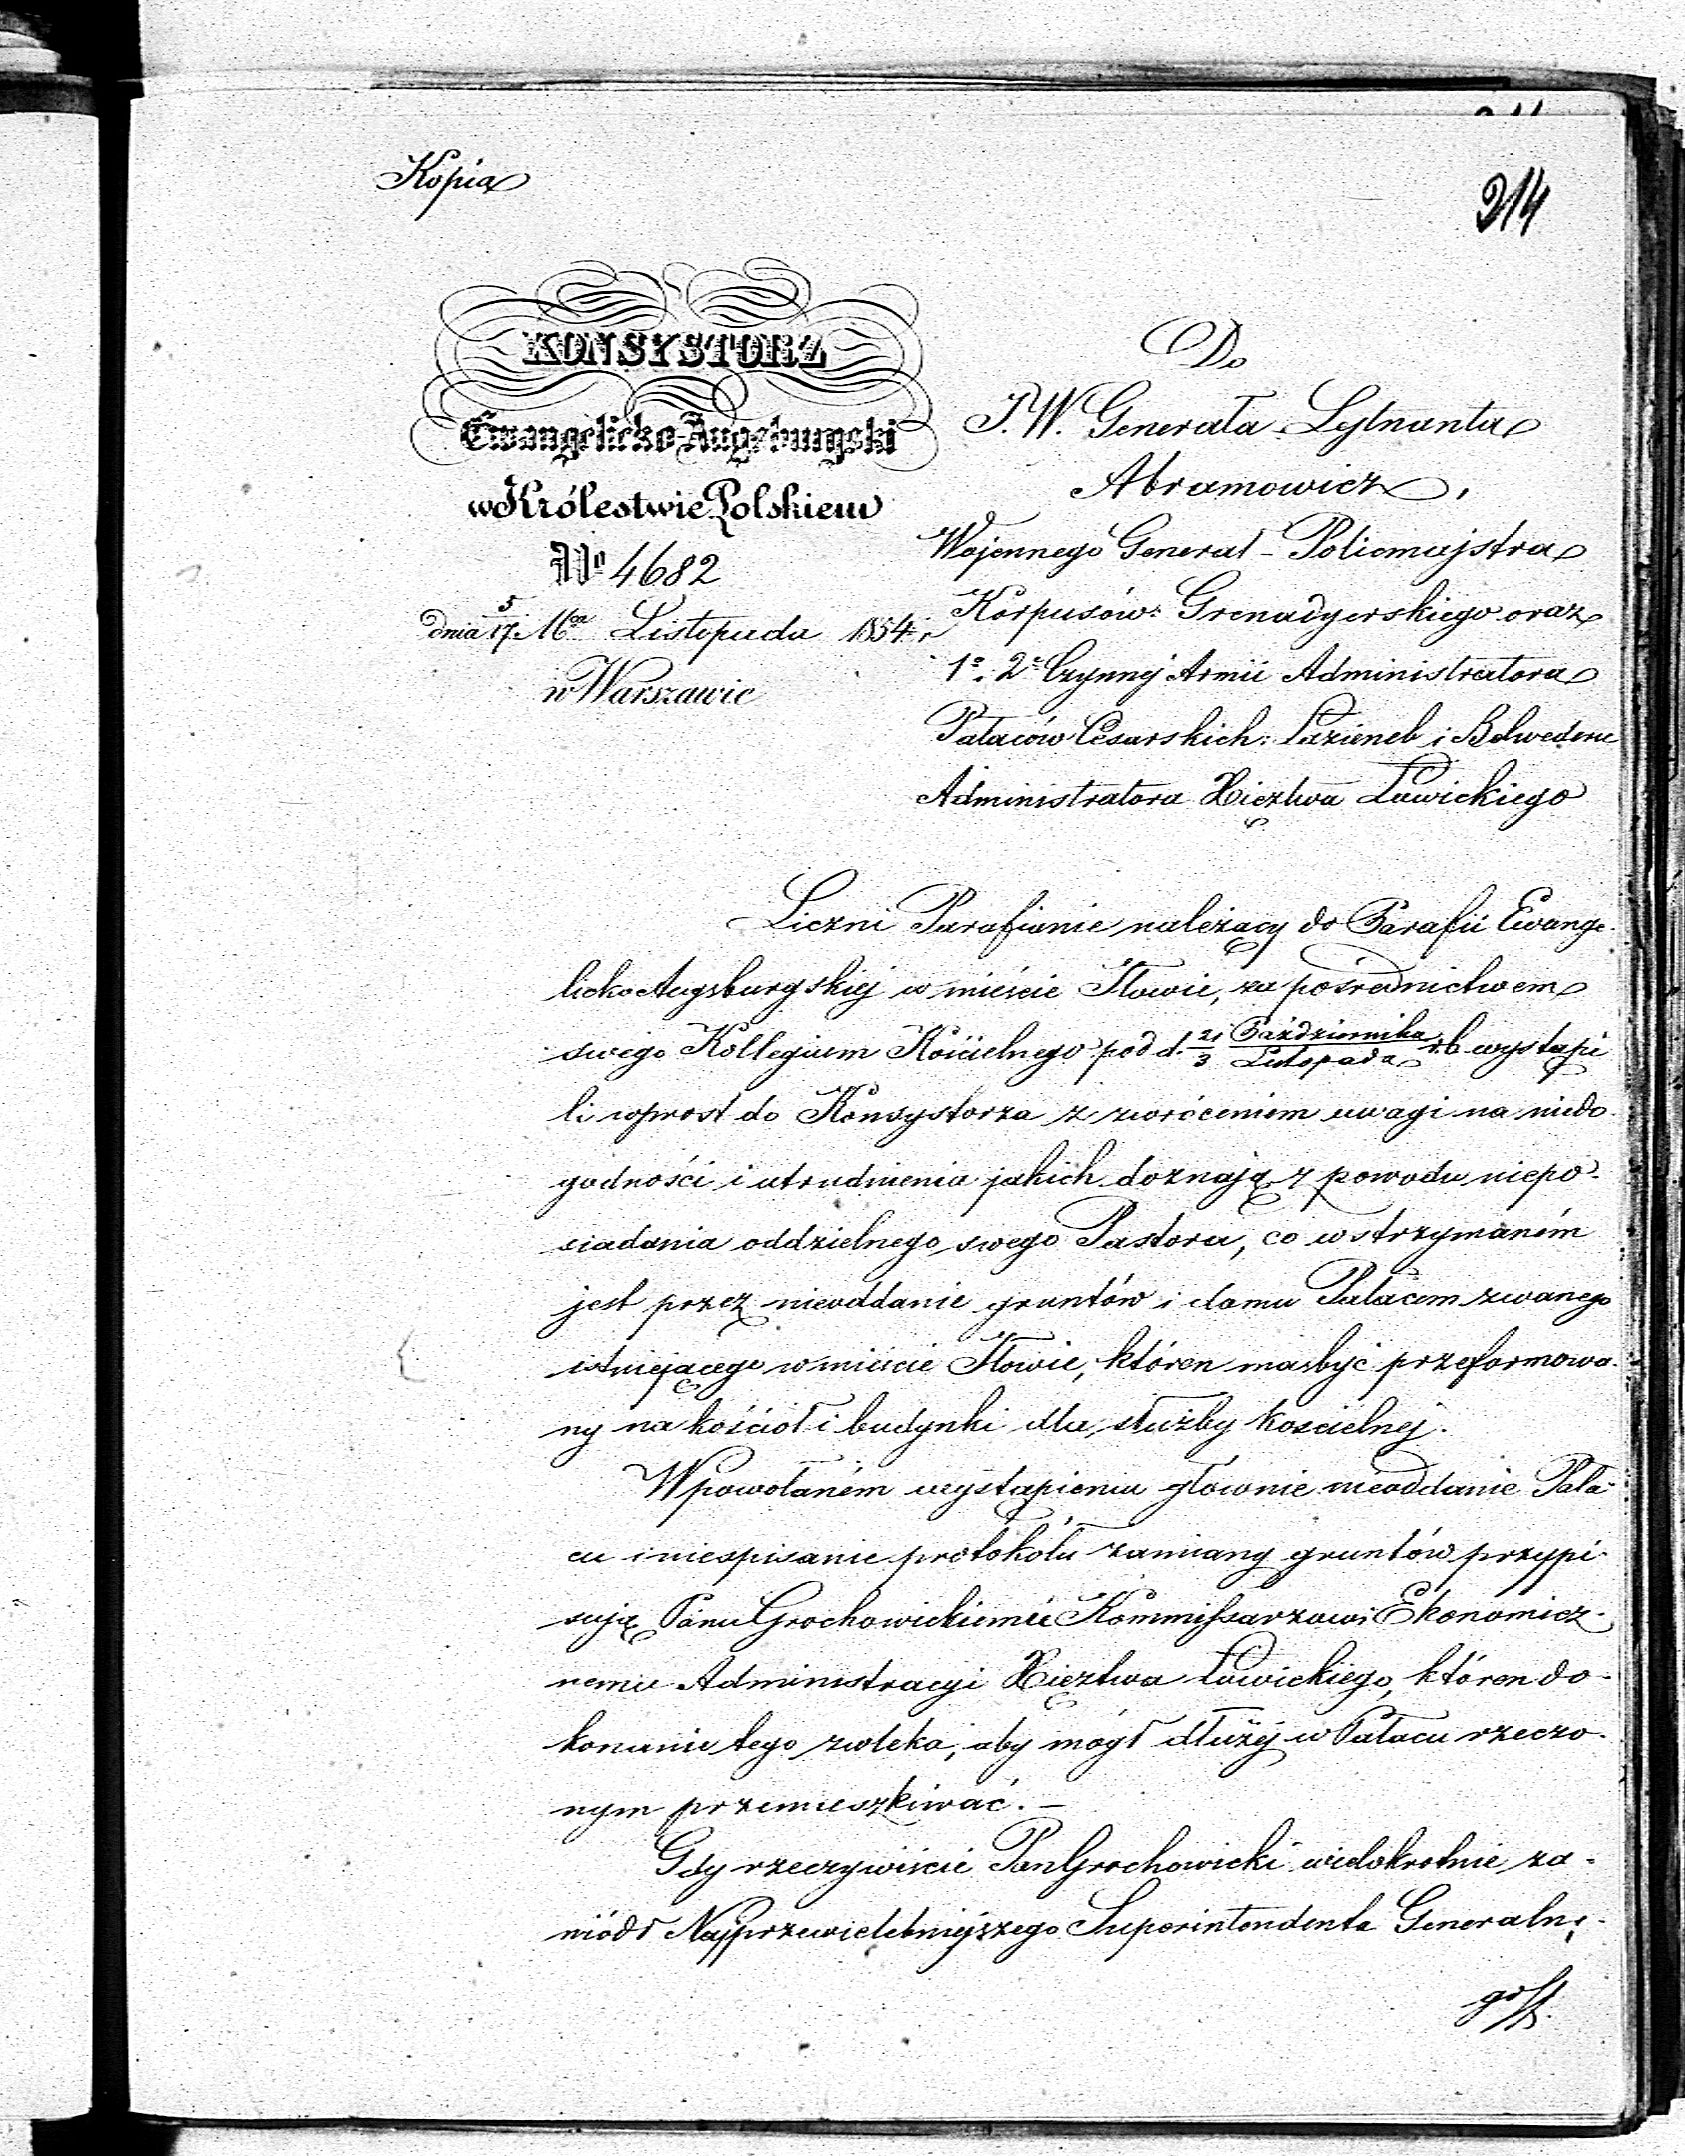 Kopia
214
KONSYSTORZ
Ewangelicko-Augsburgski
w Królestwie Polskiem
No 4682
dnia 5/17 Mca Listopada 1854 r
w Warszawie
Do
J. W. Generała Lejtnanta
Abramowicz,
Wojennego Generał-Policmajstra
Korpusów: Grenadyerskiego oraz
1o. 2o Czynnej Armii Administratora
Pałaców Cesarskich: Łazienek i Belwederu
Administratora Xięztwa Łowickiego
Liczni Parafianie należący do Parafii Ewange-
licko Augsburgskiej w mieście Iłowie, za pośrednictwem
swego Kollegium Kościelnego pod d. 21/3 Października/Listopada r.b. wystąpi
li wprost do Konsystorza z zwróceniem uwagi na niedo-
godności i utrudnienia jakich doznają z powodu niepo-
siadania oddzielnego swego Pastora, co wstrzymaném
jest przez nieoddanie gruntów i domu Pałacem zwanego
istniejącego w mieście Iłowie, któren ma być przeformowa-
ny na kościoł i budynki dla służby kościelnej.
W powołaném wystąpieniu głównie nieoddanie Pała-
cu i niespisanie protokółu zamiany gruntów przypi-
sują Panu Grochowickiemu Kommissarzowi Ekonomicz-
nemu Administracyi Xięztwa Łowickiego, któren do-
konanie tego zwleka, aby mógł dłużej w Pałacu rzeczo-
nym przemieszkiwać. —
Gdy rzeczywiście Pan Grochowicki wielokrotnie za-
wiódł Najprzewielebniejszego Superintendenta Generalne-
go